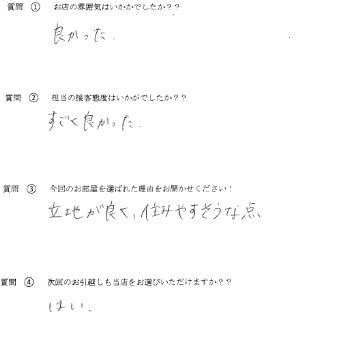 質問 ① お店の雰囲気はいかかでしたか？？
良かった.
質問 ② 担当の接客態度はいかがでしたか？？
すごく良かった.
質問 ③ 今回のお部屋を選ばれた理由をお聞かせください！
立地が良く、住みやすそうな点、
質問 ④ 次回のお引越しも当店をお選びいただけますか？？
はい、